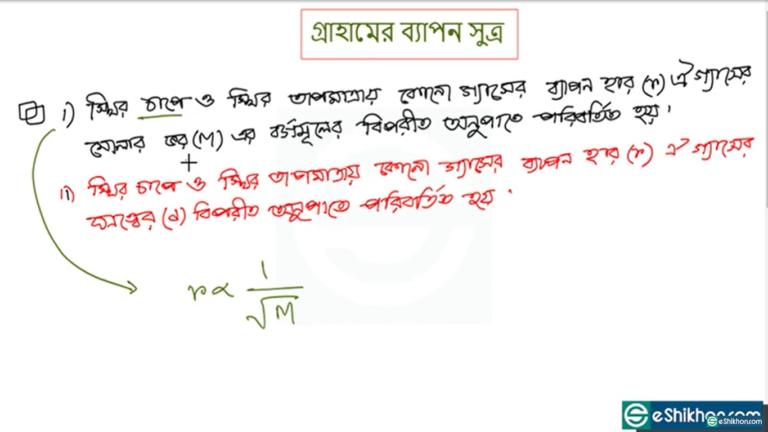 গ্রাহামের ব্যাপন সুত্র
i) স্থির চাপে ও স্থির তাপমাত্রায় কোনো গ্যাসের ব্যাপন হার (r) ঐ গ্যাসের
মোলার ভর (M) এর বর্গমূলের বিপরীত অনুপাতে পরিবর্তিত হয়।
ii) স্থির চাপে ও স্থির তাপমাত্রায় কোনো গ্যাসের ব্যাপন হার (r) ঐ গ্যাসের
ঘনত্বের (d) বিপরীত অনুপাতে পরিবর্তিত হয়।
r ∝ 1/√M
eShikhon.com
eShikhon.com